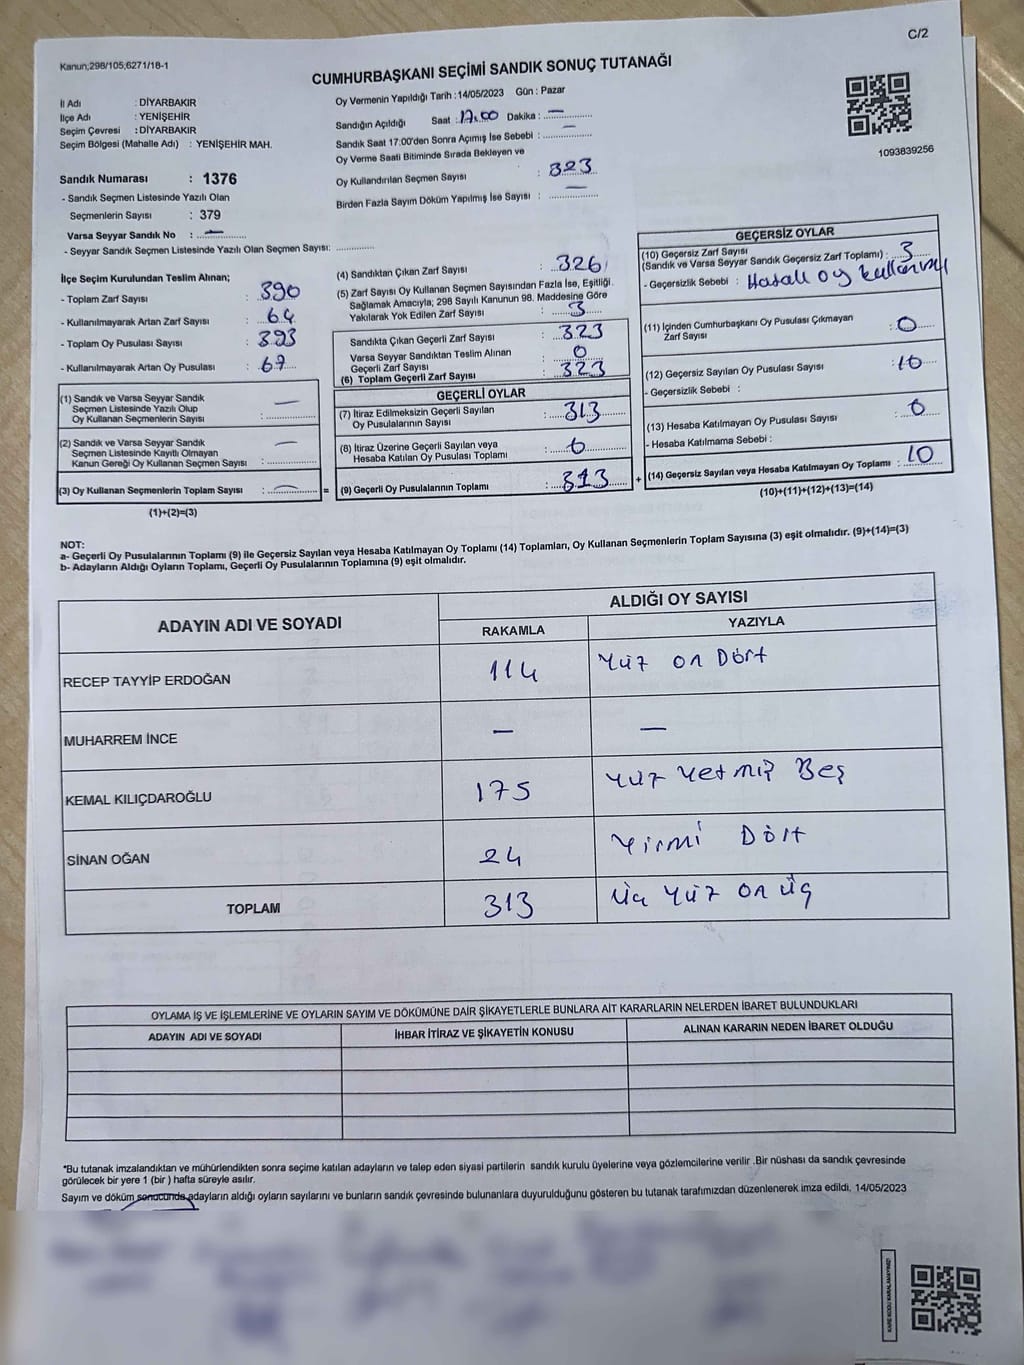 C/2
Kanun;298/105;6271/18-1
CUMHURBAŞKANI SEÇİMİ SANDIK SONUÇ TUTANAĞI
İl Adı : DİYARBAKIR
İlçe Adı : YENİŞEHİR
Seçim Çevresi : DİYARBAKIR
Seçim Bölgesi (Mahalle Adı) : YENİŞEHİR MAH.
Oy Vermenin Yapıldığı Tarih : 14/05/2023 Gün : Pazar
Sandığın Açıldığı Saat : 17.00 Dakika : —
Sandık Saat 17:00'den Sonra Açımış İse Sebebi : —
Oy Verme Saati Bitiminde Sırada Bekleyen ve
Oy Kullandırılan Seçmen Sayısı : 323
Birden Fazla Sayım Döküm Yapılmış İse Sayısı : —
1093839256
Sandık Numarası : 1376
- Sandık Seçmen Listesinde Yazılı Olan
Seçmenlerin Sayısı : 379
Varsa Seyyar Sandık No : —
- Seyyar Sandık Seçmen Listesinde Yazılı Olan Seçmen Sayısı: ............
İlçe Seçim Kurulundan Teslim Alınan;
- Toplam Zarf Sayısı : 390
- Kullanılmayarak Artan Zarf Sayısı : 64
- Toplam Oy Pusulası Sayısı : 393
- Kullanılmayarak Artan Oy Pusulası : 67
(1) Sandık ve Varsa Seyyar Sandık
Seçmen Listesinde Yazılı Olup
Oy Kullanan Seçmenlerin Sayısı : —
(2) Sandık ve Varsa Seyyar Sandık
Seçmen Listesinde Kayıtlı Olmayan
Kanun Gereği Oy Kullanan Seçmen Sayısı : —
(3) Oy Kullanan Seçmenlerin Toplam Sayısı : — =
(1)+(2)=(3)
(4) Sandıktan Çıkan Zarf Sayısı : 326
(5) Zarf Sayısı Oy Kullanan Seçmen Sayısından Fazla İse, Eşitliği
Sağlamak Amacıyla; 298 Sayılı Kanunun 98. Maddesine Göre
Yakılarak Yok Edilen Zarf Sayısı : 3
Sandıkta Çıkan Geçerli Zarf Sayısı : 323
Varsa Seyyar Sandıktan Teslim Alınan
Geçerli Zarf Sayısı : 0
(6) Toplam Geçerli Zarf Sayısı : 323
GEÇERLİ OYLAR
(7) İtiraz Edilmeksizin Geçerli Sayılan
Oy Pusulalarının Sayısı : 313
(8) İtiraz Üzerine Geçerli Sayılan veya
Hesaba Katılan Oy Pusulası Toplamı : 0
(9) Geçerli Oy Pusulalarının Toplamı : 313 +
GEÇERSİZ OYLAR
(10) Geçersiz Zarf Sayısı
(Sandık ve Varsa Seyyar Sandık Geçersiz Zarf Toplamı) : 3
- Geçersizlik Sebebi : Hatalı oy
(11) İçinden Cumhurbaşkanı Oy Pusulası Çıkmayan
Zarf Sayısı : 0
(12) Geçersiz Sayılan Oy Pusulası Sayısı : 10
- Geçersizlik Sebebi :
(13) Hesaba Katılmayan Oy Pusulası Sayısı : 0
- Hesaba Katılmama Sebebi :
(14) Geçersiz Sayılan veya Hesaba Katılmayan Oy Toplamı : 10
(10)+(11)+(12)+(13)=(14)
NOT:
a- Geçerli Oy Pusulalarının Toplamı (9) ile Geçersiz Sayılan veya Hesaba Katılmayan Oy Toplamı (14) Toplamları, Oy Kullanan Seçmenlerin Toplam Sayısına (3) eşit olmalıdır. (9)+(14)=(3)
b- Adayların Aldığı Oyların Toplamı, Geçerli Oy Pusulalarının Toplamına (9) eşit olmalıdır.
ADAYIN ADI VE SOYADI ALDIĞI OY SAYISI
RAKAMLA YAZIYLA
RECEP TAYYİP ERDOĞAN 114 Yüz on Dört
MUHARREM İNCE — —
KEMAL KILIÇDAROĞLU 175 Yüz Yetmiş Beş
SİNAN OĞAN 24 Yirmi Dört
TOPLAM 313 Üç Yüz on üç
OYLAMA İŞ VE İŞLEMLERİNE VE OYLARIN SAYIM VE DÖKÜMÜNE DAİR ŞİKAYETLERLE BUNLARA AİT KARARLARIN NELERDEN İBARET BULUNDUKLARI
ADAYIN ADI VE SOYADI İHBAR İTİRAZ VE ŞİKAYETİN KONUSU ALINAN KARARIN NEDEN İBARET OLDUĞU
*Bu tutanak imzalandıktan ve mühürlendikten sonra seçime katılan adayların ve talep eden siyasi partilerin sandık kurulu üyelerine veya gözlemcilerine verilir .Bir nüshası da sandık çevresinde
görülecek bir yere 1 (bir ) hafta süreyle asılır.
Sayım ve döküm sonucunda adayların aldığı oyların sayılarını ve bunların sandık çevresinde bulunanlara duyurulduğunu gösteren bu tutanak tarafımızdan düzenlenerek imza edildi. 14/05/2023
KARE KODU KARALAMAYINIZ!